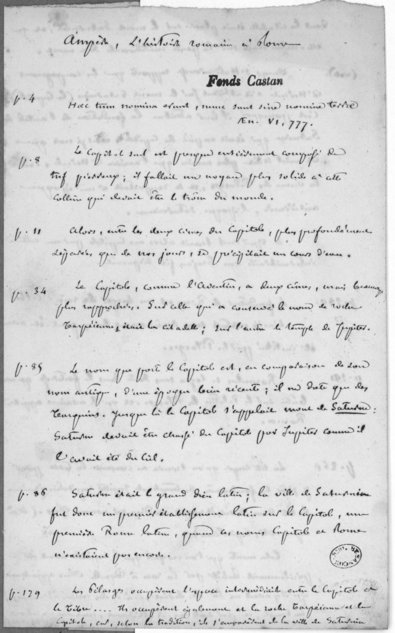 Ampère, L'histoire romaine à Rome
Fonds Castan
p. 4 Haec tum nomina erunt, nunc sunt sine nomine terrae
Æn. VI, 777.
p. 8 Le Capitole seul est presque entièrement composé de
tuf pierreux; il fallait un noyau plus solide à cette
colline qui devait être le trône du monde.
p. 11 Alors, entre les deux cimes du Capitole, plus profondément
séparées que de nos jours, se précipitait un cours d'eau.
p. 34 Le Capitole, comme l'Aventin, a deux cimes, mais beaucoup
plus rapprochées. Sur celle qui a conservé le nom de roche
Tarpéienne, était la citadelle; sur l'autre le temple de Jupiter.
p. 85 Le nom que porte le Capitole est, en comparaison de son
nom antique, d'une époque bien récente; il ne date que des
Tarquins. Jusque là le Capitole s'appelait mont de Saturne:
Saturne devait être chassé du Capitole par Jupiter comme il
l'avait été du Ciel.
p. 86 Saturne était le grand dieu latin; la ville de Saturnia
fut donc un premier établissement latin sur le Capitole, une
première Rome latine, quand les noms Capitole et Rome
n'existaient pas encore.
p. 179 Les Pélasges occupèrent l'espace intermédiaire entre le Capitole et
le Tibre .... Ils occupèrent également et la roche Tarpéienne et le
Capitole, car, selon la tradition, ils s'emparèrent de la ville de Saturnia